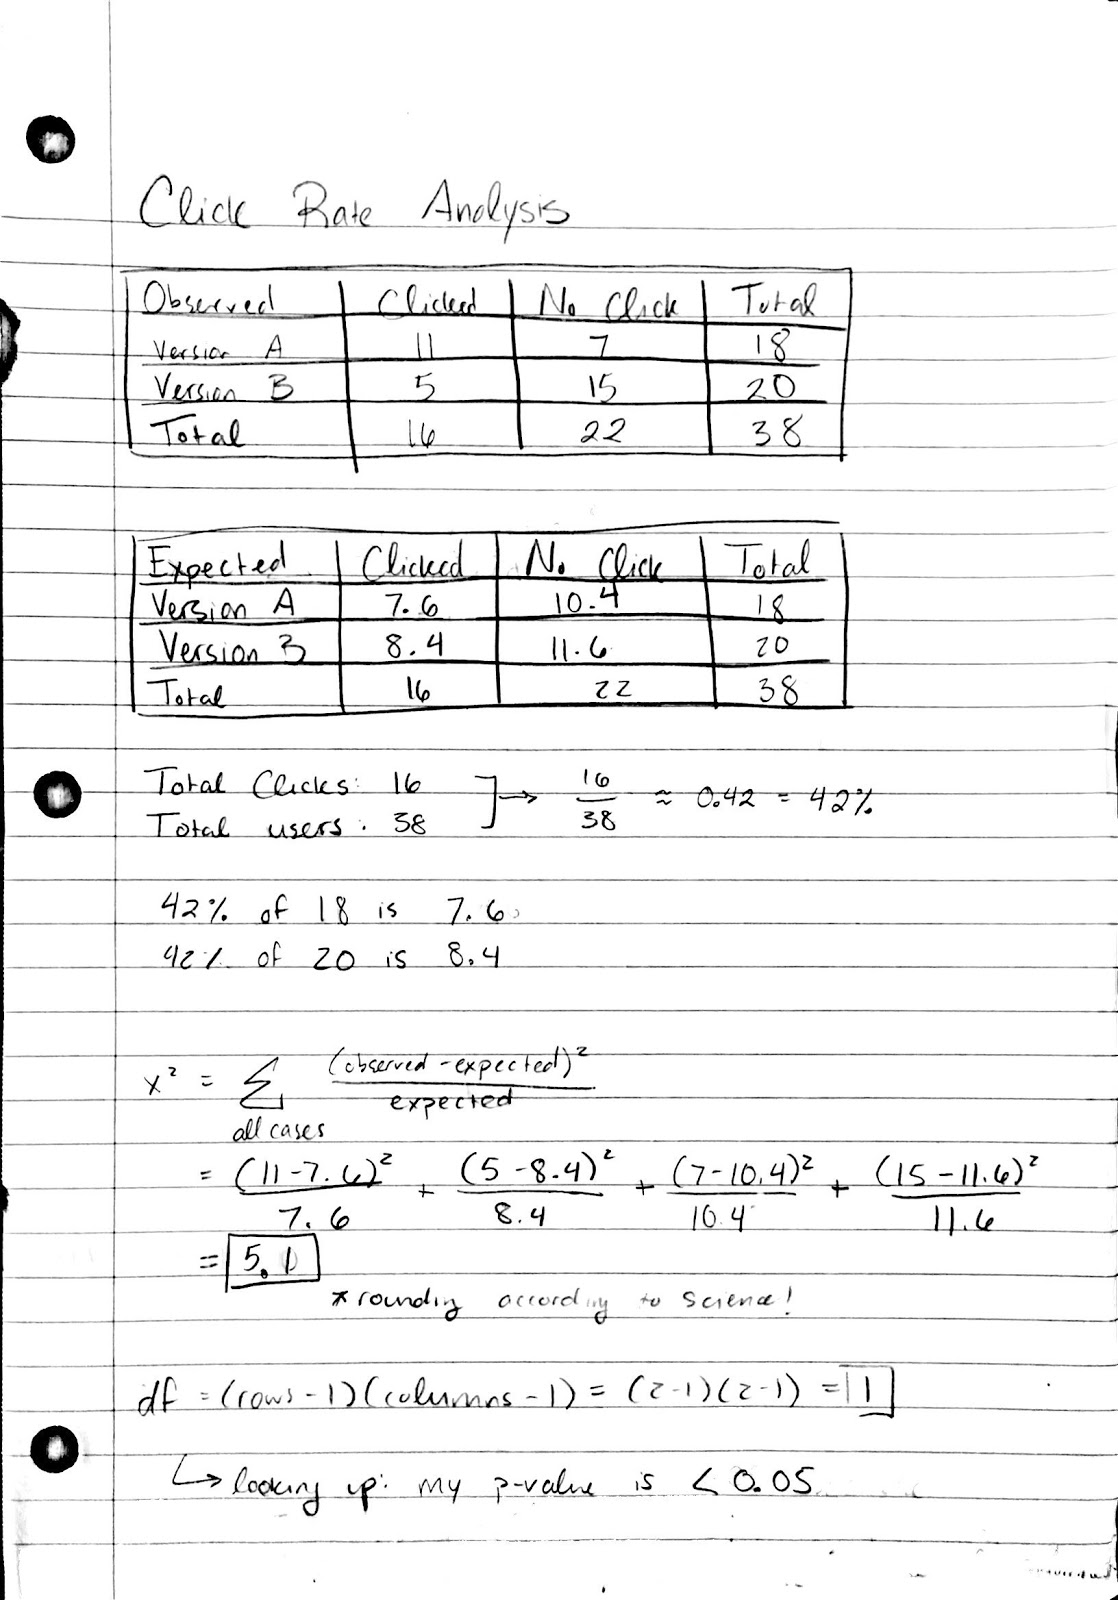 Click Rate Analysis
Observed Clicked No Click Total
Version A 11 7 18
Version B 5 15 20
Total 16 22 38
Expected Clicked No Click Total
Version A 7.6 10.4 18
Version B 8.4 11.6 20
Total 16 22 38
Total Clicks: 16
Total users: 38
] → 16/38 ≈ 0.42 = 42%
42% of 18 is 7.6
42% of 20 is 8.4
x² = Σ (observed - expected)² / expected
all cases
= (11-7.6)²/7.6 + (5-8.4)²/8.4 + (7-10.4)²/10.4 + (15-11.6)²/11.6
= 5.1
* rounding according to science!
df = (rows - 1)(columns - 1) = (2-1)(2-1) = 1
↳ looking up: my p-value is < 0.05